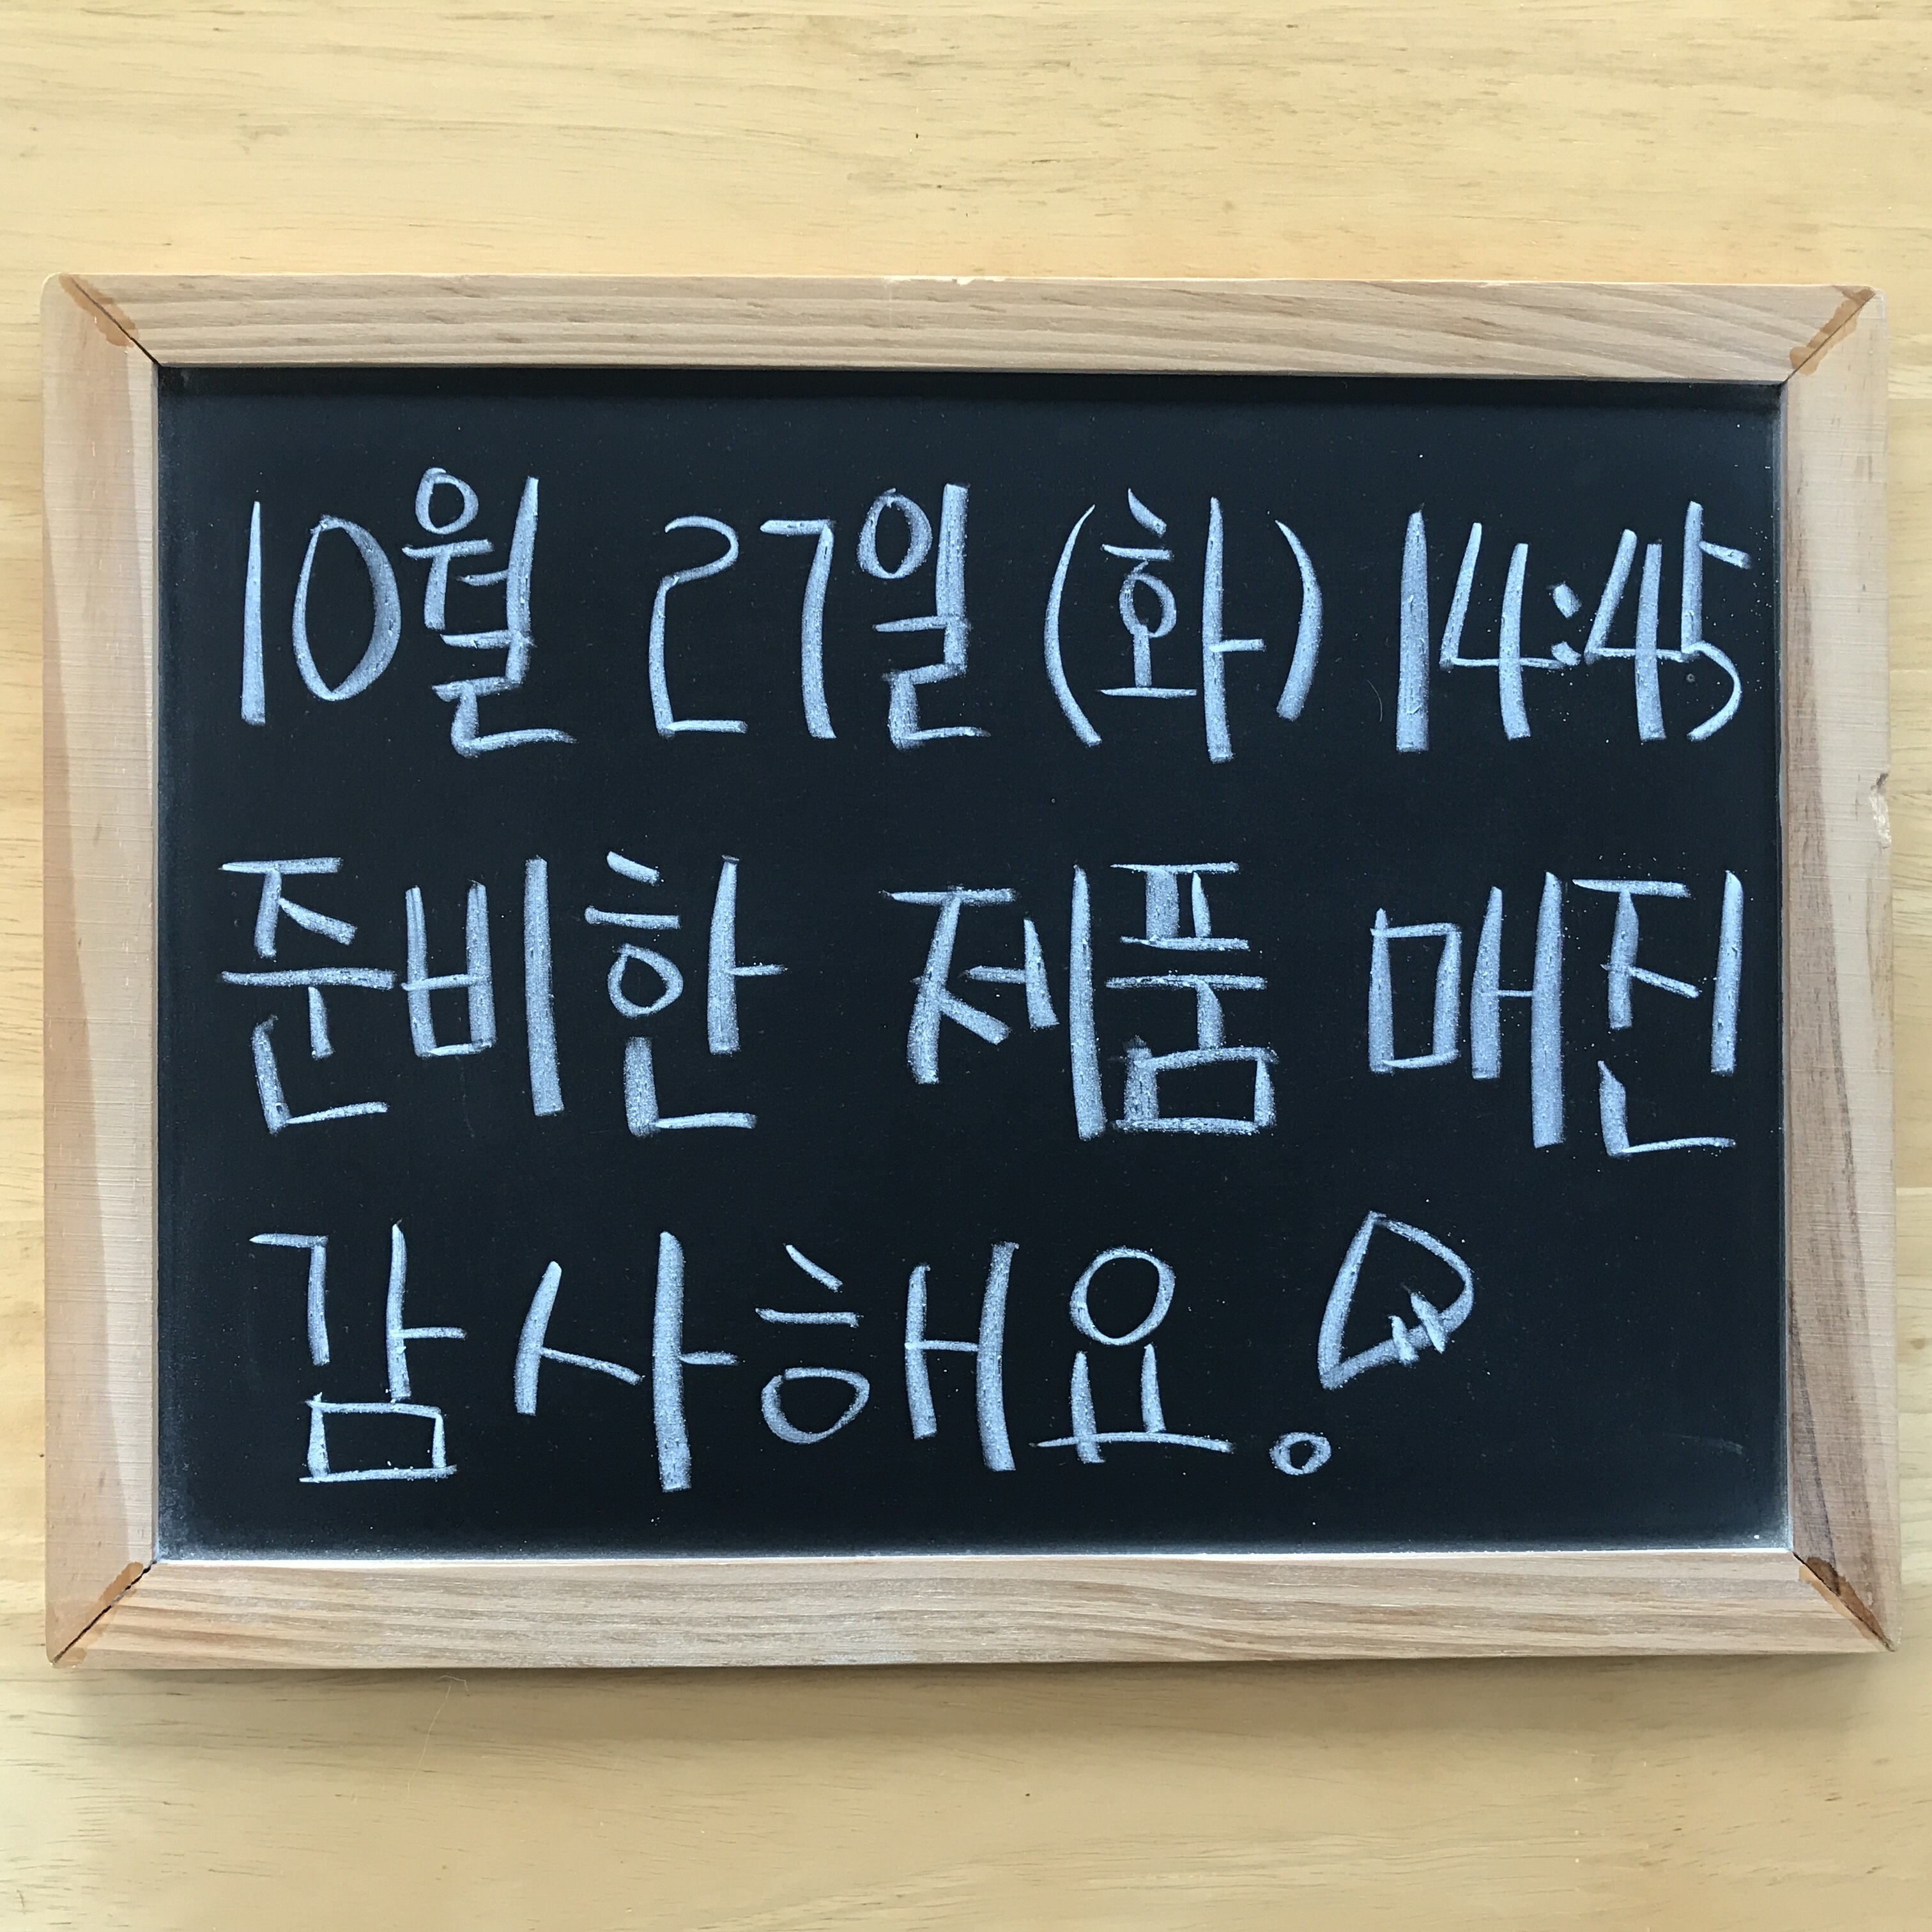 10월 27일 (화) 14:45
준비한 제품 매진
감사해요!